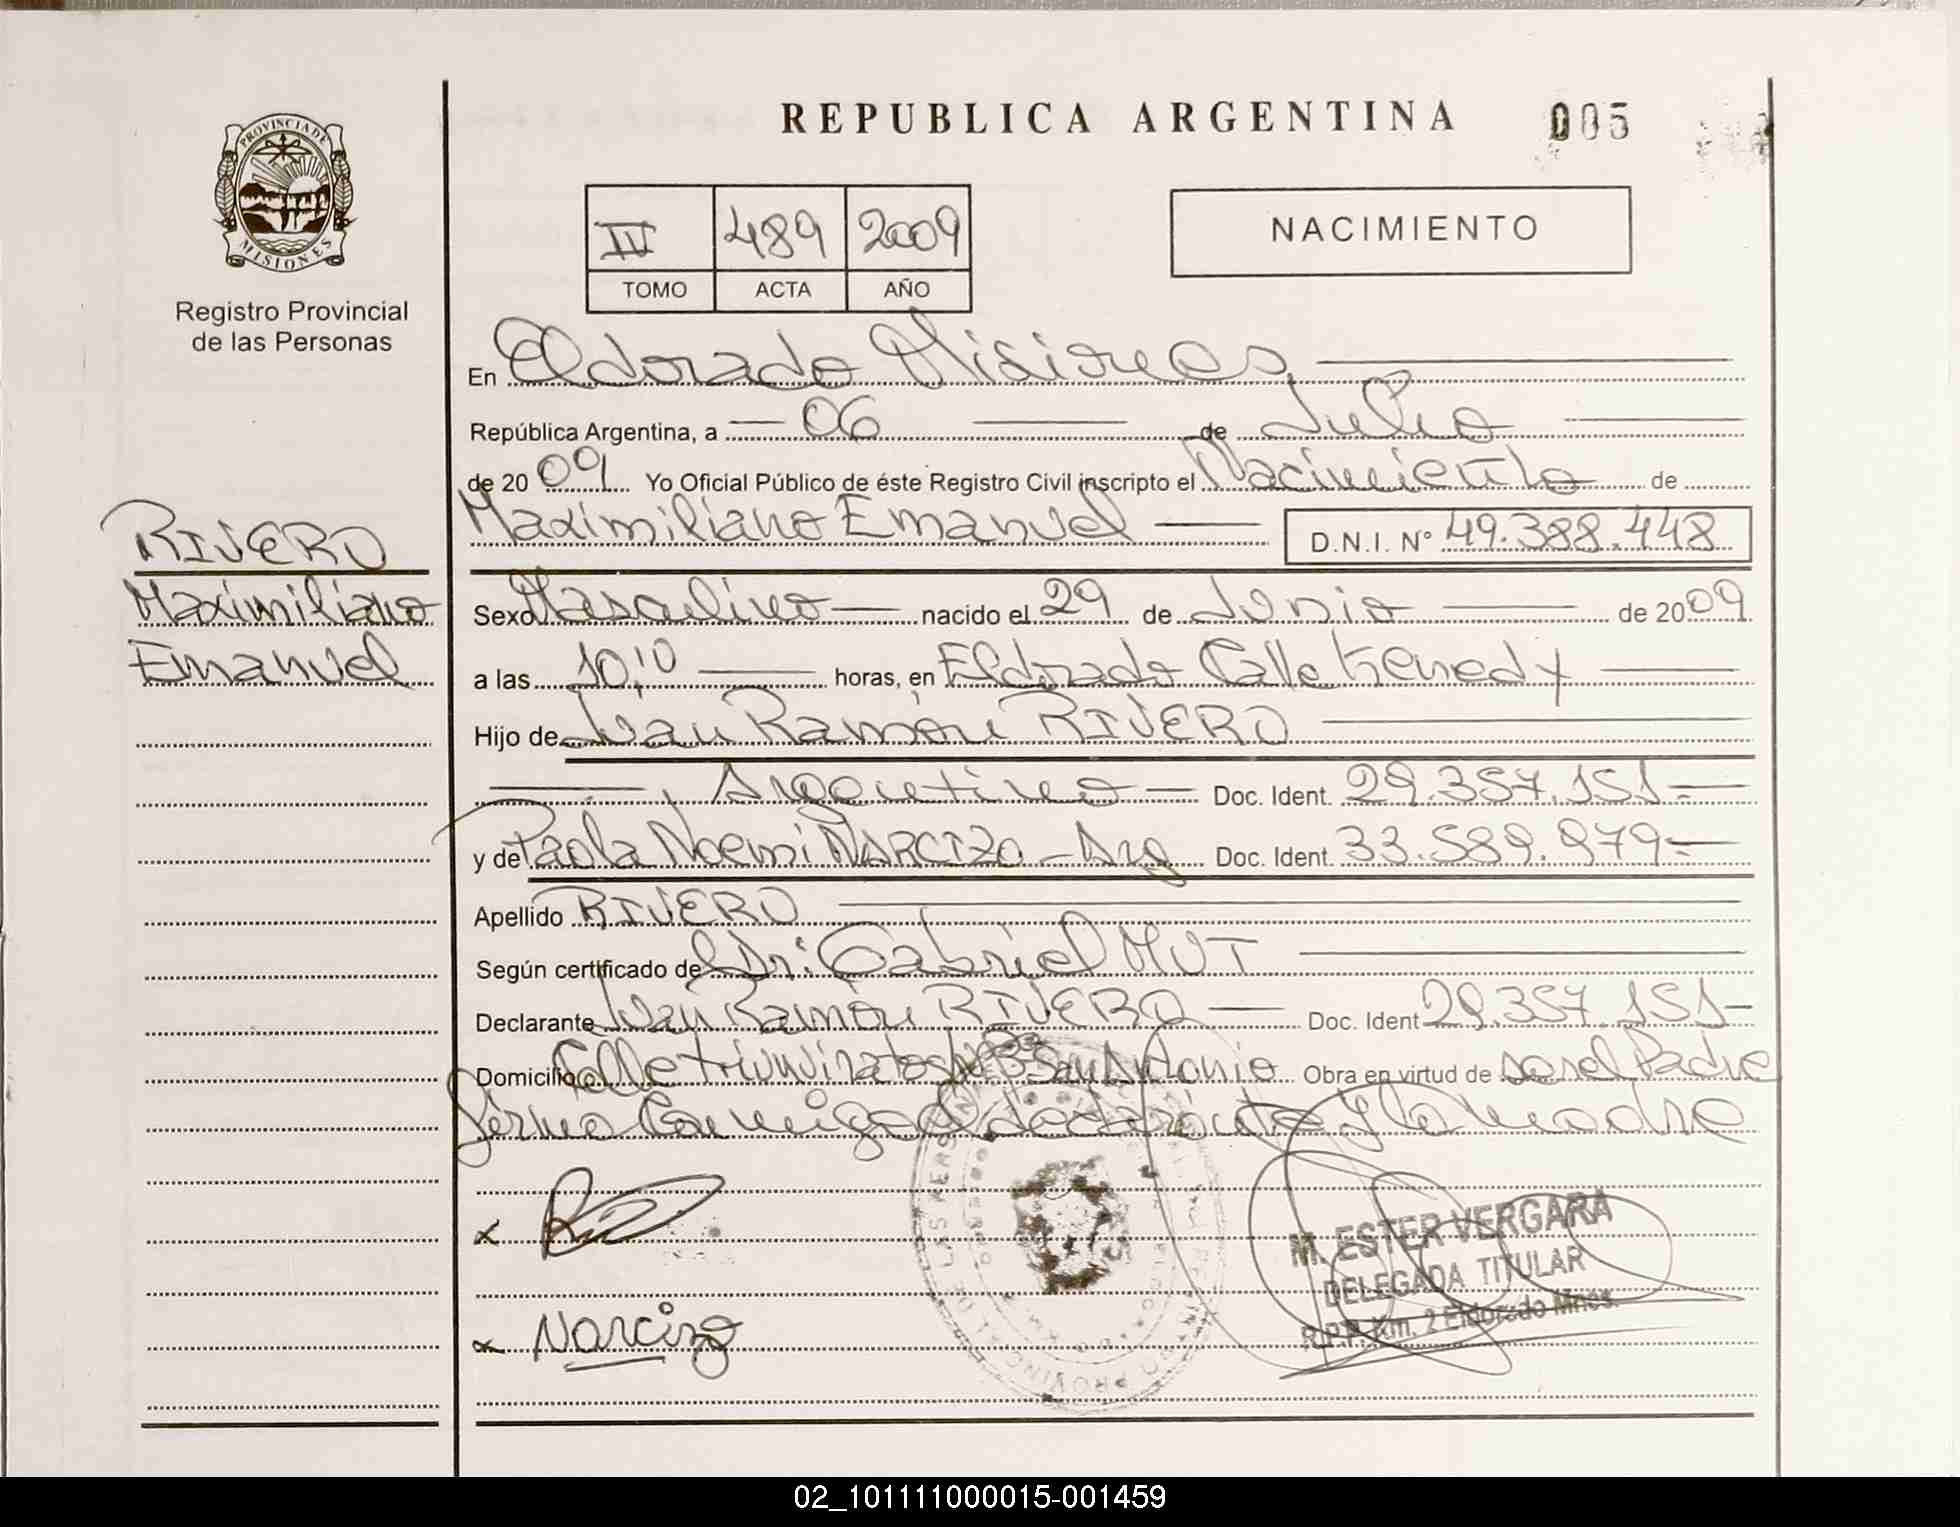 REPUBLICA ARGENTINA
005
PROVINCIA DE
MISIONES
Registro Provincial
de las Personas
IV 489 2009
TOMO ACTA AÑO
NACIMIENTO
En Eldorado Misiones
República Argentina, a 06 de Julio
de 2009 Yo Oficial Público de éste Registro Civil inscripto el Nacimiento de
Maximiliano Emanuel D.N.I. N° 49.388.448
RIVERO
Maximiliano
Emanuel
Sexo Masculino nacido el 29 de Junio de 2009
a las 10:10 horas, en Eldorado Calle Kenedy
Hijo de Juan Ramón RIVERO
Argentino Doc. Ident. 29.357.151.-
y de Paola Noemi NARCIZO - Arg Doc. Ident. 33.589.979.-
Apellido RIVERO
Según certificado de Dr: Gabriel MUT
Declarante Juan Ramón RIVERO Doc. Ident 29.357.151-
Domicilio Calle triunvirato San Antonio Obra en virtud de ser el Padre
firma Conmigo el declarante y la madre
x
x Narcizo
M. ESTER VERGARA
DELEGADA TITULAR
R.P.P. Km. 2 Eldorado Mnes.
02_101111000015-001459